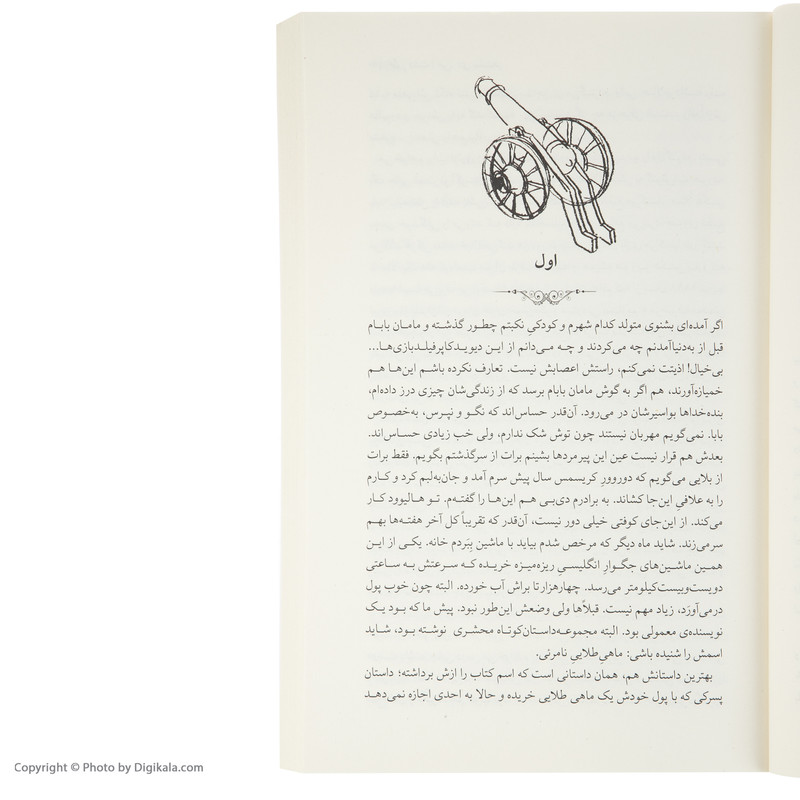 اول
اگر آمده‌ای بشنوی متولد کدام شهرم و کودکیِ نکبتم چطور گذشته و مامان بابام
قبل از به‌دنیاآمدنم چه می‌کردند و چه می‌دانم از این دیویدکاپرفیلدبازی‌ها...
بی‌خیال! اذیتت نمی‌کنم، راستش اعصابش نیست. تعارف نکرده باشم این‌ها هم
خمیازه‌آورند، هم اگر به گوش مامان بابام برسد که از زندگی‌شان چیزی درز داده‌ام،
بنده‌خداها بواسیرشان در می‌رود. آن‌قدر حساس‌اند که نگو و نپرس، به‌خصوص
بابا. نمی‌گویم مهربان نیستند چون توش شک ندارم، ولی خب زیادی حساس‌اند.
بعدش هم قرار نیست عین این پیرمردها بشینم برات از سرگذشتم بگویم. فقط برات
از بلایی می‌گویم که دوروورِ کریسمس سال پیش سرم آمد و جان‌به‌لبم کرد و کارم
را به علافیِ این‌جا کشاند. به برادرم دی‌بی هم این‌ها را گفته‌م. تو هالیوود کار
می‌کند. از این‌جای کوفتی خیلی دور نیست، آن‌قدر که تقریباً کل آخر هفته‌ها بهم
سر می‌زند. شاید ماه دیگر که مرخص شدم بیاید با ماشین بِبَردم خانه. یکی از این
همین ماشین‌های جگوارِ انگلیسیِ ریزه‌میزه خریده که سرعتش به ساعتی
دویست‌وبیست‌کیلومتر می‌رسد. چهارهزارتا براش آب خورده. البته چون خوب پول
درمی‌آورَد، زیاد مهم نیست. قبلاًها ولی وضعش این‌طور نبود. پیش ما که بود یک
نویسنده‌ی معمولی بود. البته مجموعه‌داستان‌کوتاه محشری نوشته بود، شاید
اسمش را شنیده باشی: ماهیِ‌طلاییِ نامرئی.
بهترین داستانش هم، همان داستانی است که اسم کتاب را ازش برداشته؛ داستان
پسرکی که با پول خودش یک ماهی طلایی خریده و حالا به احدی اجازه نمی‌دهد
Copyright © Photo by Digikala.com